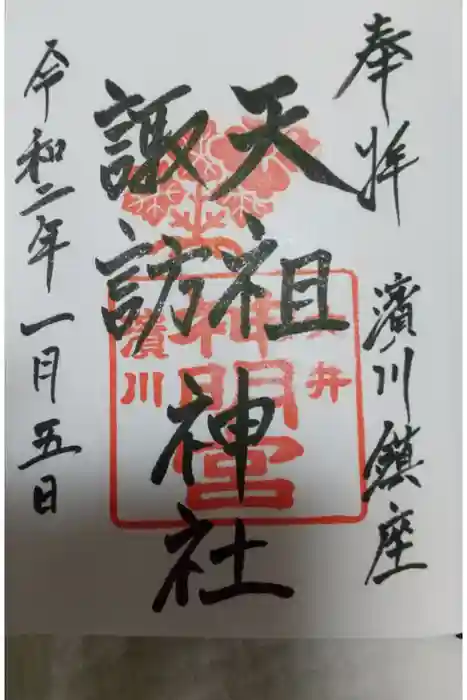 奉拝 濱川鎮座
天祖
諏訪
神社
令和二年一月五日
大井
神明宮
濱川